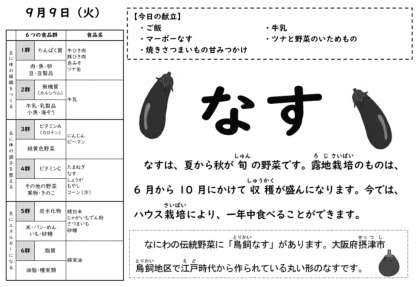 9月9日（火）
【今日の献立】
・ご飯
・牛乳
・マーボーなす
・ツナと野菜のいためもの
・焼きさつまいもの甘みつかけ
6つの食品群
食品名
主に体の組織をつくる
1群
たんぱく質
肉・魚・卵
豆・豆製品
牛ひき肉
豚ひき肉
赤みそ
ツナ缶
2群
無機質
（カルシウム）
牛乳・乳製品
小魚・海そう
牛乳
主に体の調子を整える
3群
ビタミンA
（カロテン）
緑黄色野菜
にんじん
ピーマン
4群
ビタミンC
その他の野菜
果物・きのこ
たまねぎ
なす
しょうが
もやし
コーン（冷）
主にエネルギーになる
5群
炭水化物
米・パン・めん
いも・砂糖
精白米
じゃがいもでん粉
さつまいも
砂糖
6群
脂質
油脂・種実類
綿実油
なす
しゅん
ろじさいばい
なすは、夏から秋が旬の野菜です。露地栽培のものは、
しゅうかく
6月から10月にかけて収穫が盛んになります。今では、
さいばい
ハウス栽培により、一年中食べることができます。
とりかい
せっつし
なにわの伝統野菜に「鳥飼なす」があります。大阪府摂津市
とりかい
えど
鳥飼地区で江戸時代から作られている丸い形のなすです。